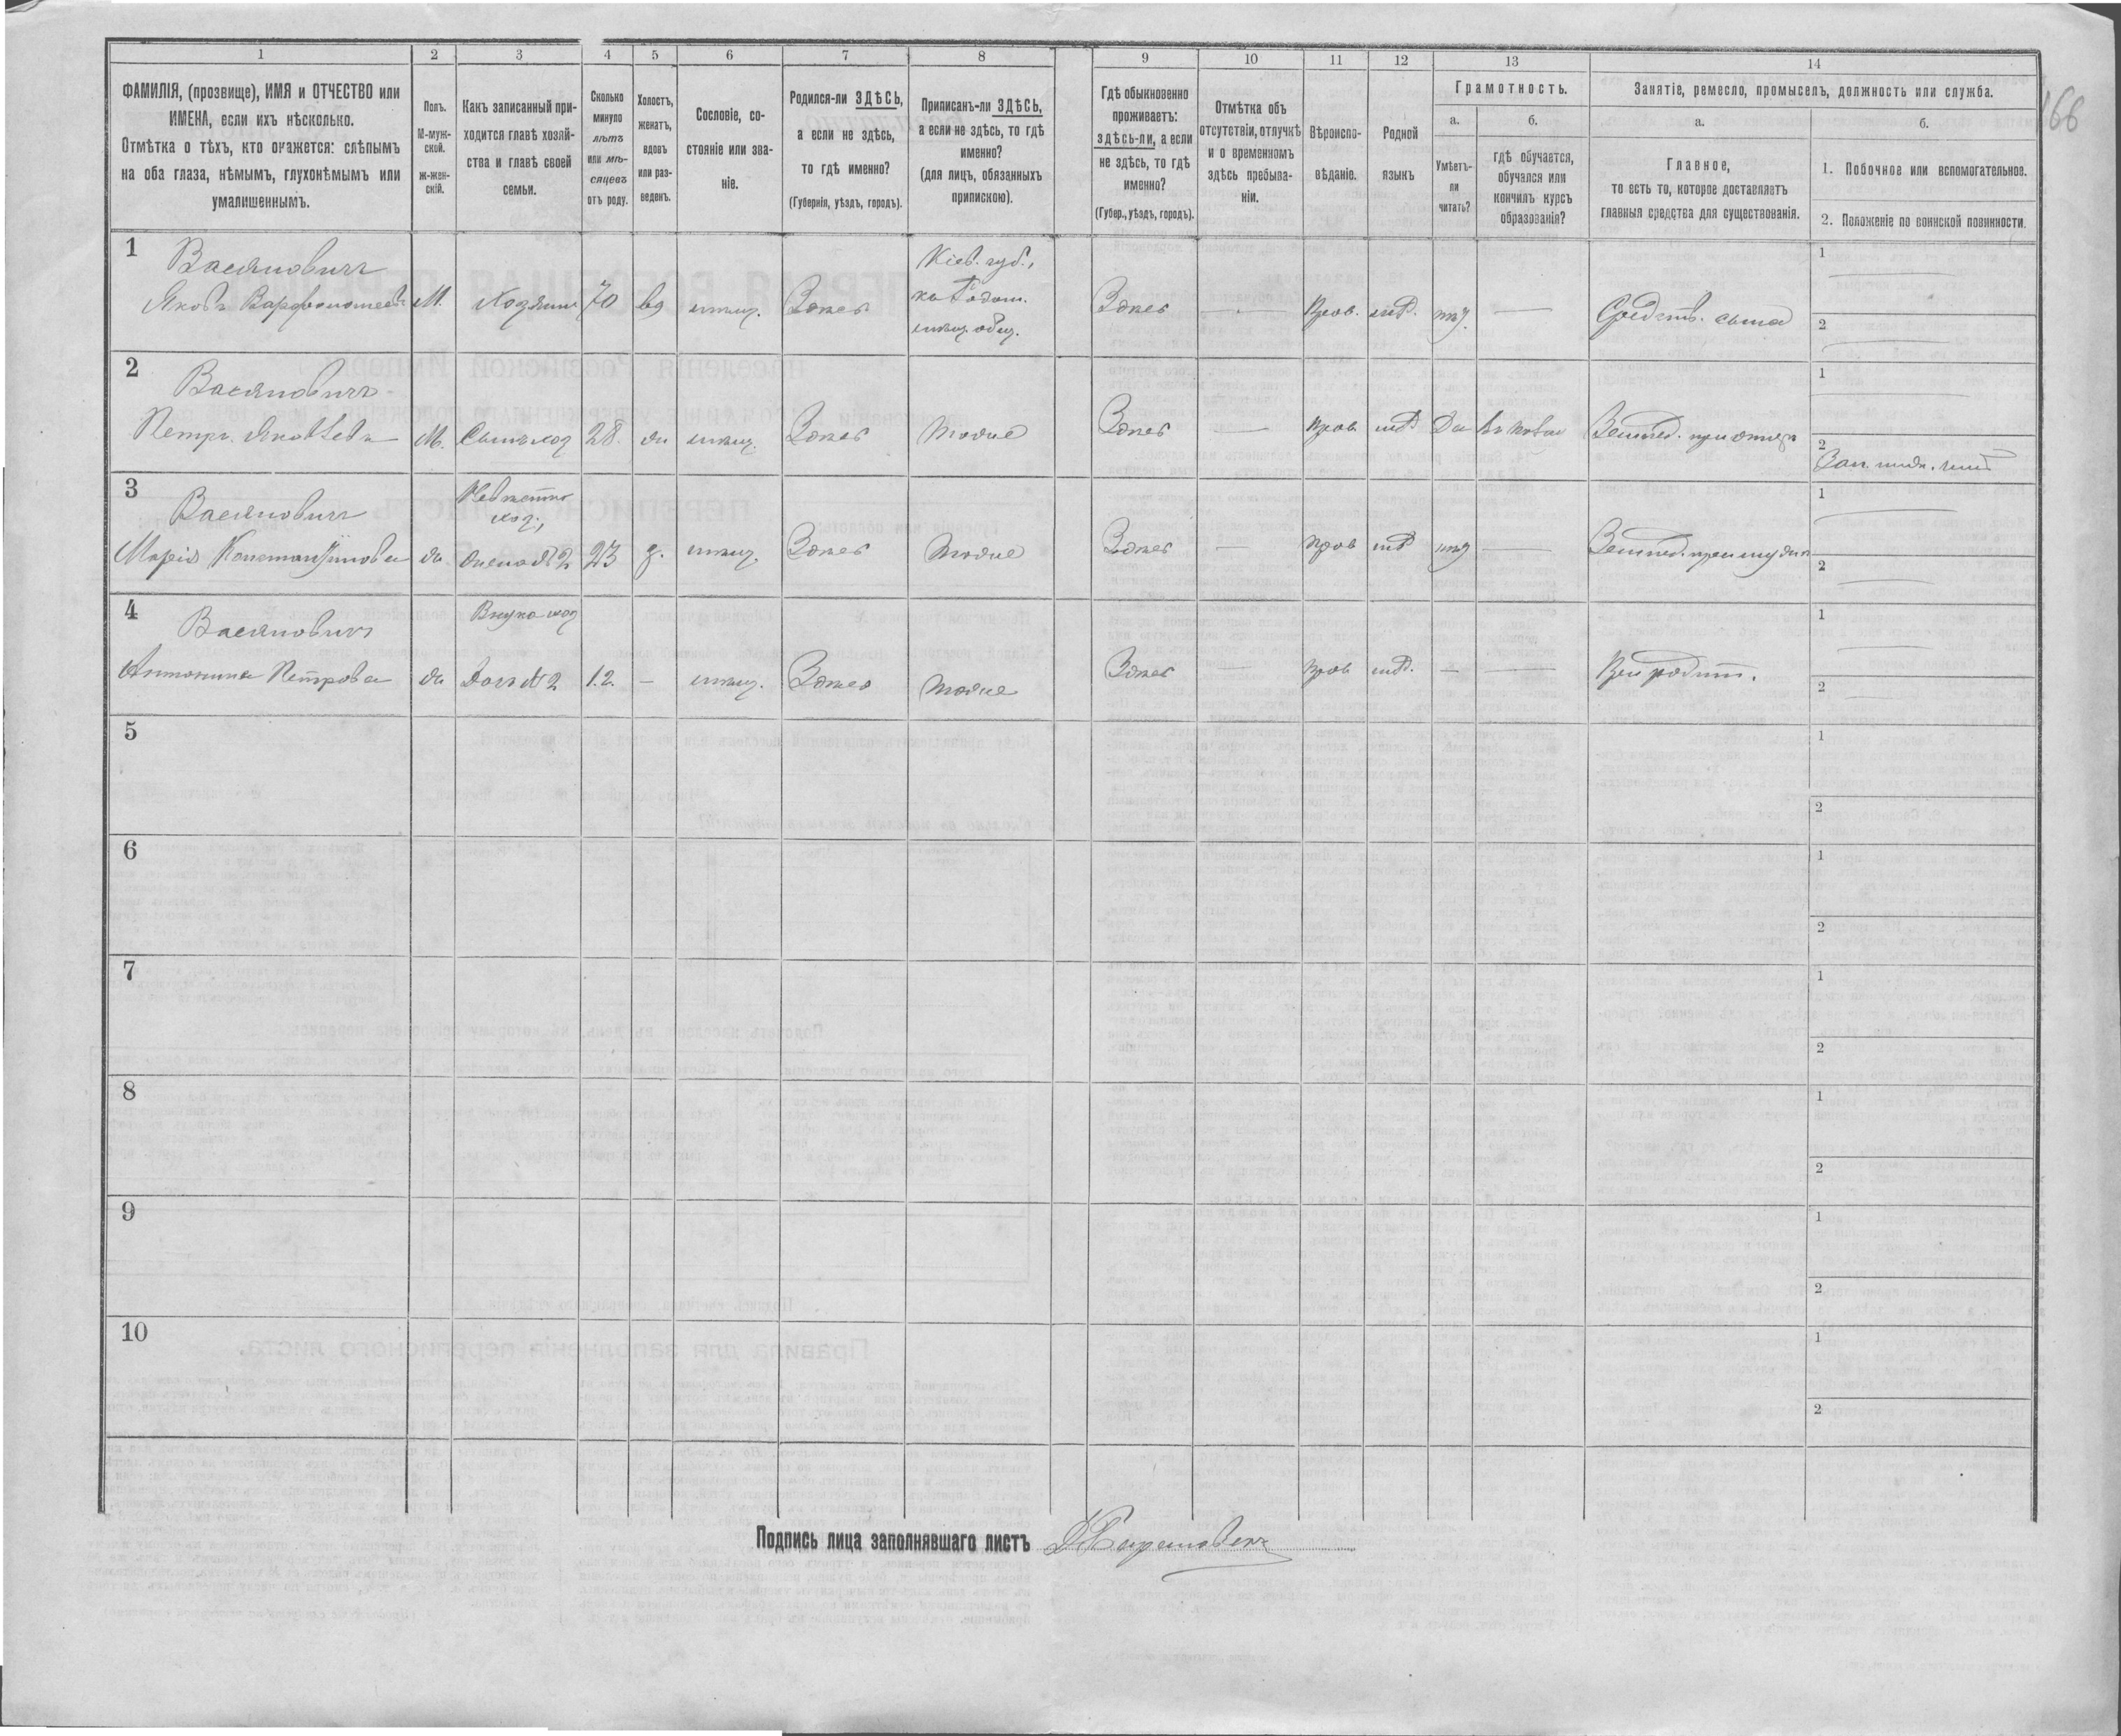 166
1 2 3 4 5 6 7 8 9 10 11 12 13 14
ФАМИЛІЯ, (прозвище), ИМЯ и ОТЧЕСТВО или
ИМЕНА, если ихъ нѣсколько.
Отмѣтка о тѣхъ, кто окажется: слѣпымъ
на оба глаза, нѣмымъ, глухонѣмымъ или
умалишеннымъ.
Полъ.
М-муж-
ской.
Ж-жен-
скій.
Какъ записанный при-
ходится главѣ хозяй-
ства и главѣ своей
семьи.
Сколько
минуло
лѣтъ
или мѣ-
сяцевъ
отъ роду.
Холостъ,
женатъ,
вдовъ
или раз-
веденъ.
Сословіе, со-
стояніе или зва-
ніе.
Родился-ли ЗДѢСЬ,
а если не здѣсь,
то гдѣ именно?
(Губернія, уѣздъ, городъ).
Приписанъ-ли ЗДѢСЬ,
а если не здѣсь, то гдѣ
именно?
(для лицъ, обязанныхъ
припискою).
Гдѣ обыкновенно
проживаетъ:
здѣсь-ли, а если
не здѣсь, то гдѣ
именно?
(Губер., уѣздъ, городъ).
Отмѣтка объ
отсутствіи, отлучкѣ
и о временномъ
здѣсь пребыва-
ніи.
Вѣроиспо-
вѣданіе.
Родной
языкъ
Грамотность.
а.
Умѣетъ-
ли
читать?
б.
гдѣ обучается,
обучался или
кончилъ курсъ
образованія?
Занятіе, ремесло, промыселъ, должность или служба.
а.
Главное,
то есть то, которое доставляетъ
главныя средства для существованія.
б.
1. Побочное или вспомогательное.
2. Положеніе по воинской повинности.
1
Васяновичъ
Яковъ Варфоломеевъ М. Хозяинъ 70 вд мѣщ. Здѣсь
Кіев. губ.,
мѣщ. общ.
Здѣсь — Прав. — Средств. сына
1
2
2
Васяновичъ
Петръ Яковлевъ М. Сынъ хоз 28. жн мѣщ. Здѣсь тоже Здѣсь — прав Да
1
2
3
Васяновичъ
Невѣстка
хоз.,
Марія Константинова ж. жена №2 23 з. мѣщ. Здѣсь тоже Здѣсь — прав —
1
2
4
Васяновичъ
Внука хоз
Антонина Петрова ж Дочь №2 1.2. — мѣщ. Здѣсь тоже Здѣсь — прав — — При родит.
1
2
5
1
2
6
1
2
7
1
2
8
1
2
9
1
2
10
1
2
Подпись лица заполнявшаго листъ